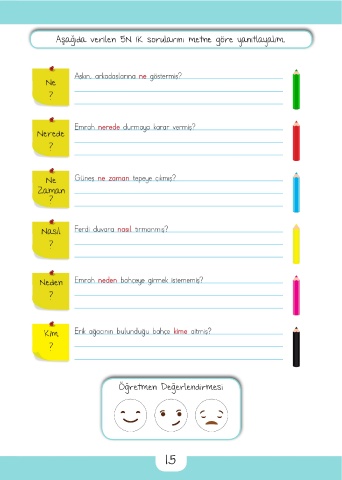 Aşağıda verilen 5N 1K sorularını metne göre yanıtlayalım.
Ne
?
Aslın, arkadaşlarına ne göstermiş?
Nerede
?
Emrah nerede durmaya karar vermiş?
Ne
Zaman
?
Güneş ne zaman tepeye çıkmış?
Nasıl
?
Ferdi duvara nasıl tırmanmış?
Neden
?
Emrah neden bahçeye girmek istememiş?
Kim
?
Erik ağacının bulunduğu bahçe kime aitmiş?
Öğretmen Değerlendirmesi
15